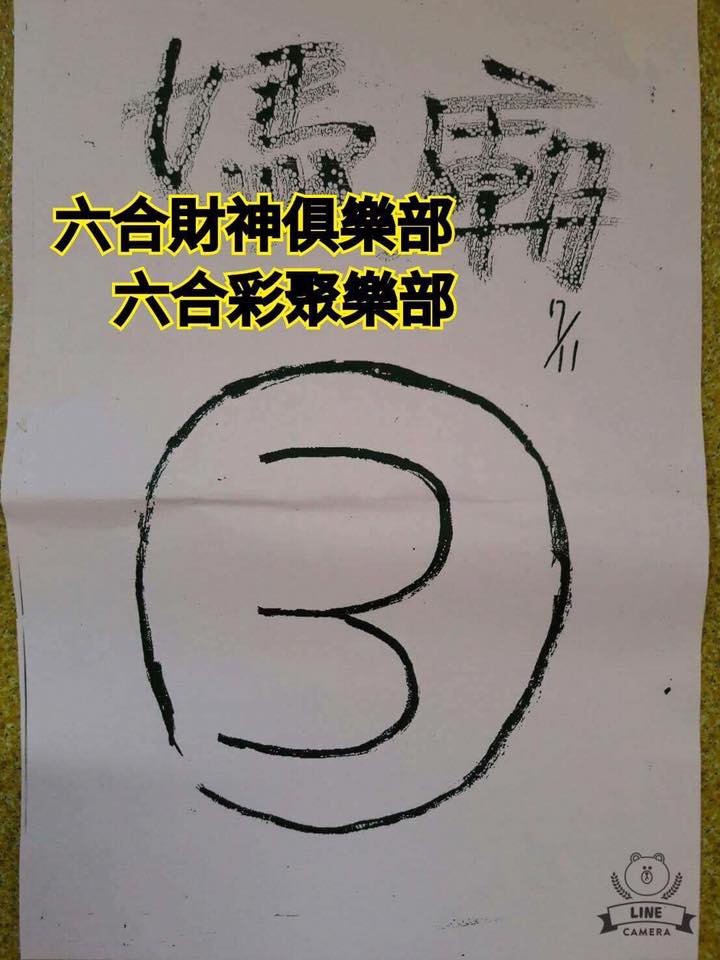 媽廟
六合財神俱樂部
六合彩聚樂部
7/11
3
LINE
CAMERA